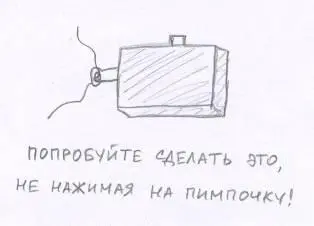 ПОПРОБУЙТЕ СДЕЛАТЬ ЭТО,
НЕ НАЖИМАЯ НА ПИМПОЧКУ!